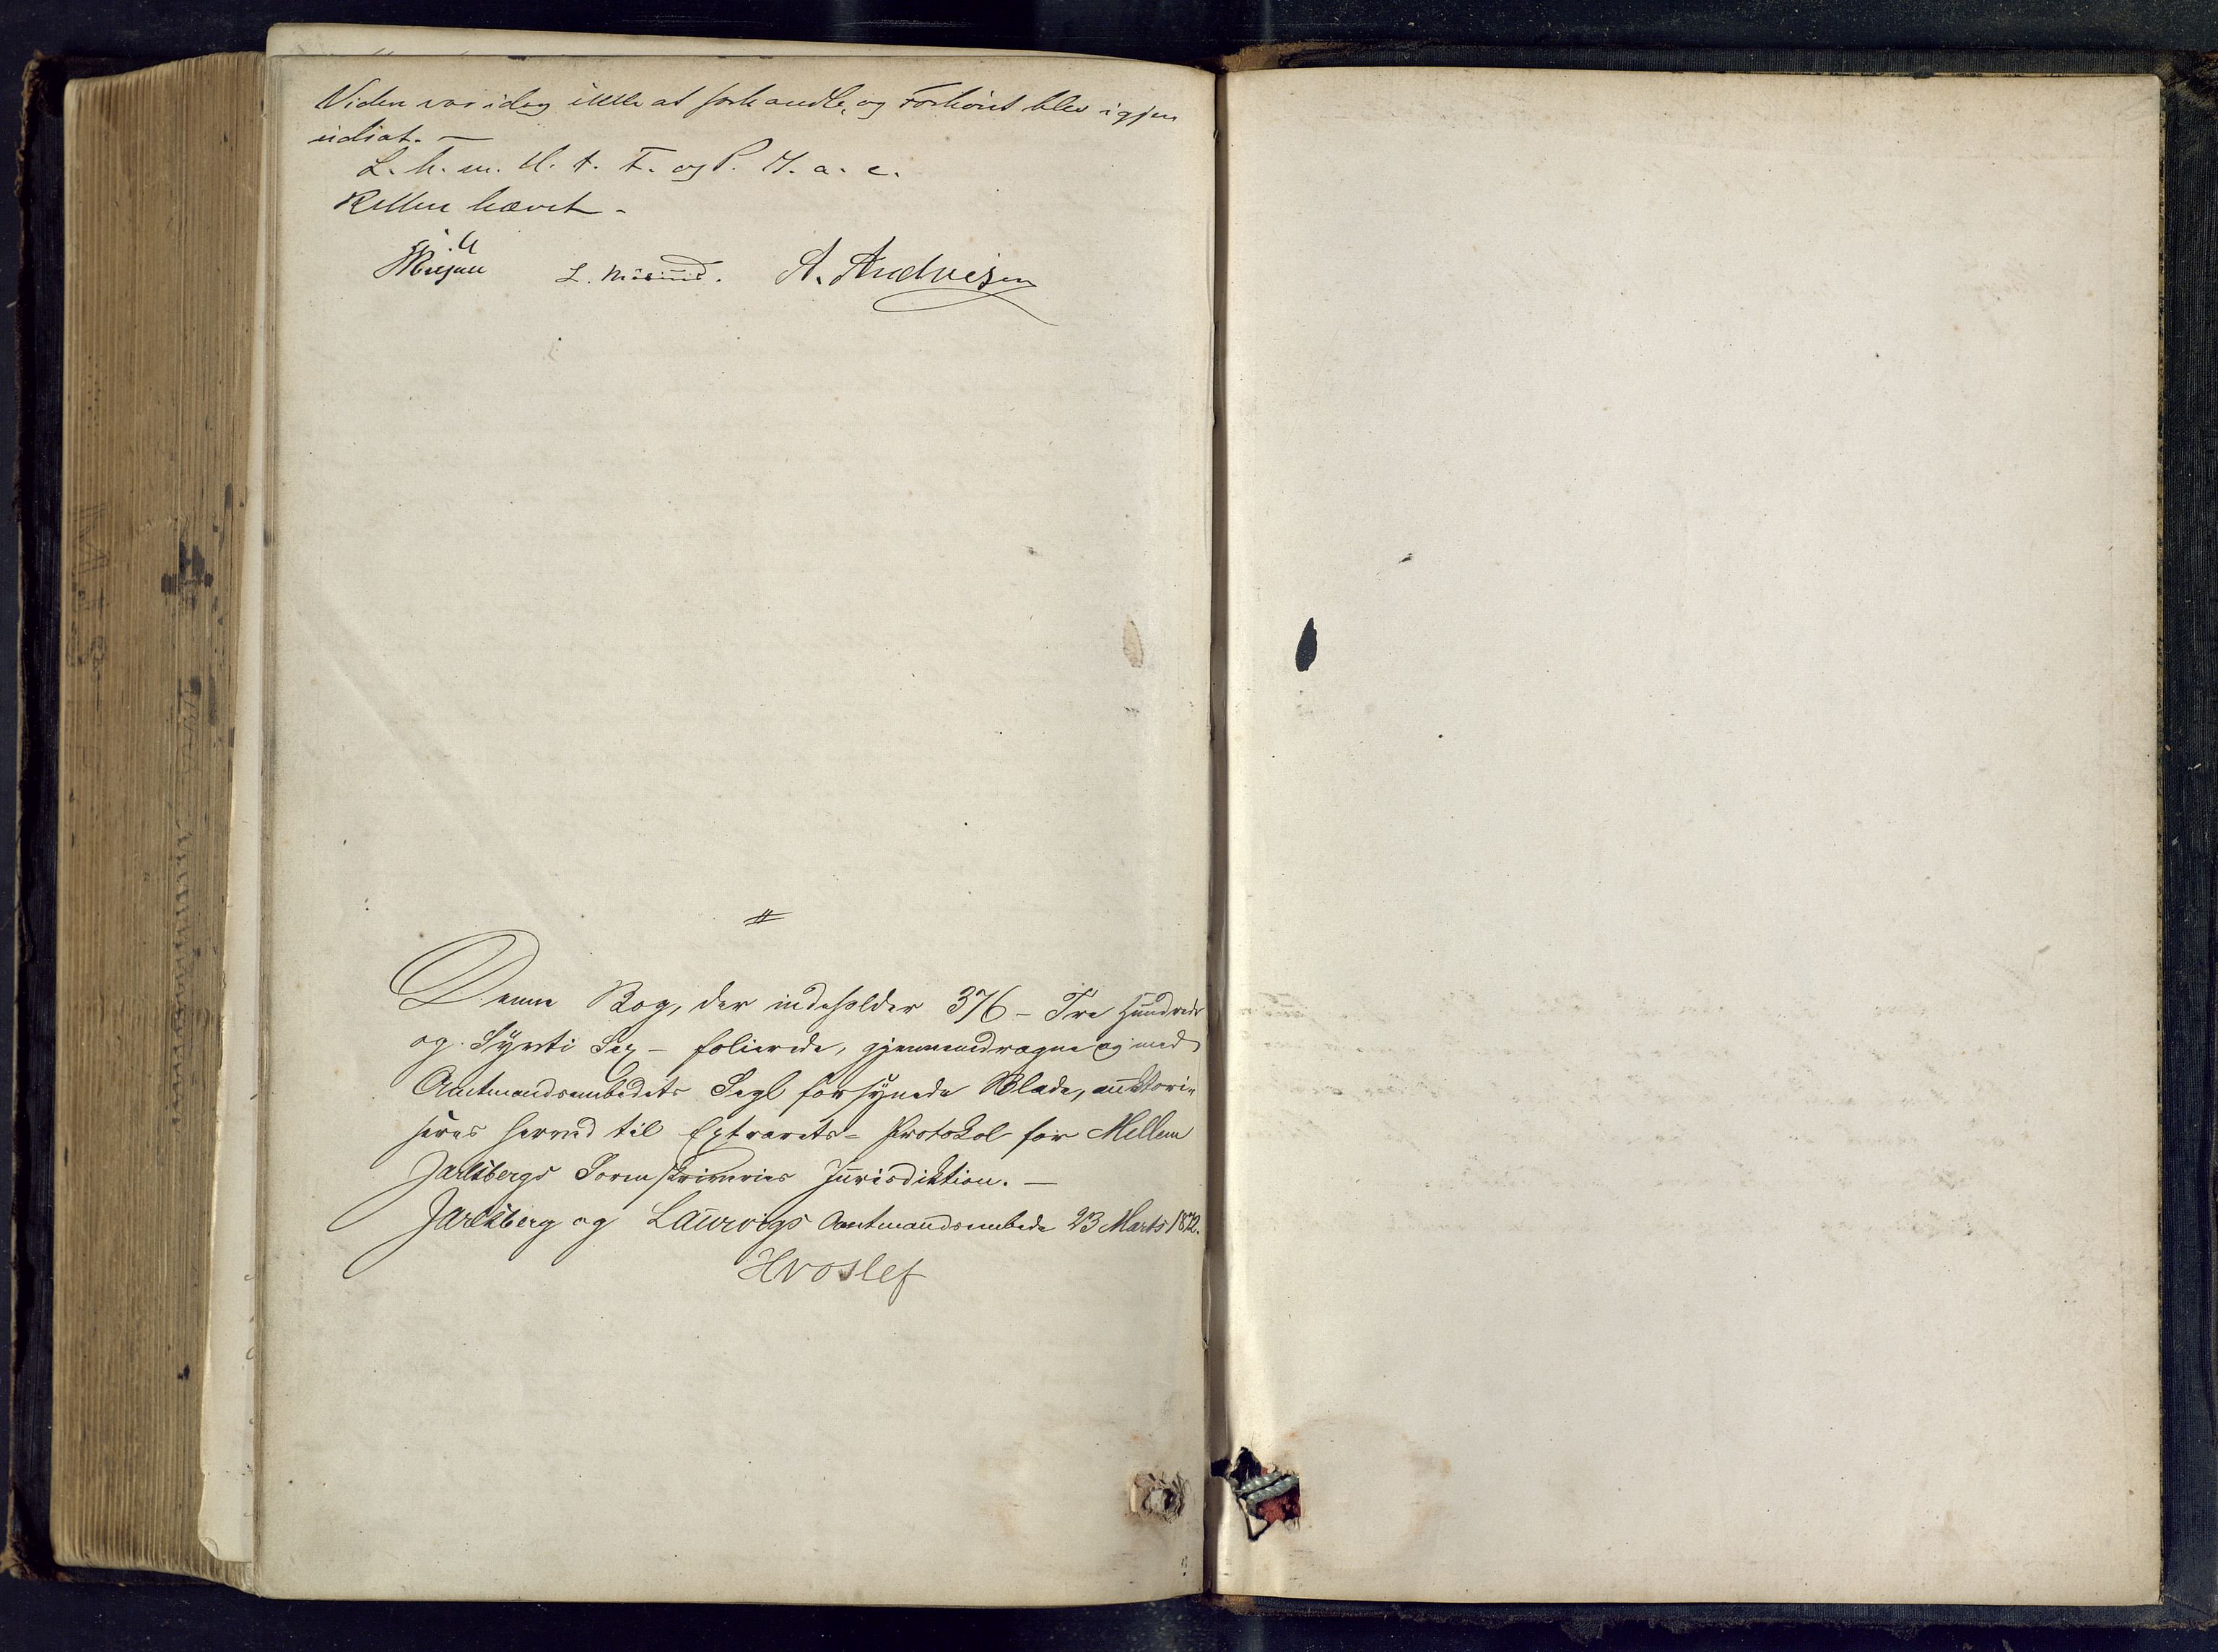 Viden var idag ikke at forhandle, og Forhøret blev igjen
udsat. —
L. h. m. U. t. T. og P. M. a. c.
Retten hævet -
A. Andresen
Denne Bog, der indeholder 376 - Tre Hundrede
og Sÿvti Sex - folierede, gjennemdragne og med
Amtmandsembedets Segl forsÿnede Blade, auktori-
seres herved til Extrarets- Protokol for Mellem
Jarlsbergs Sorenskriveries Jurisdiktion. —
Jarlsberg og Laurvigs Amtmandsembede 23 Marts 1872.
Hroslef